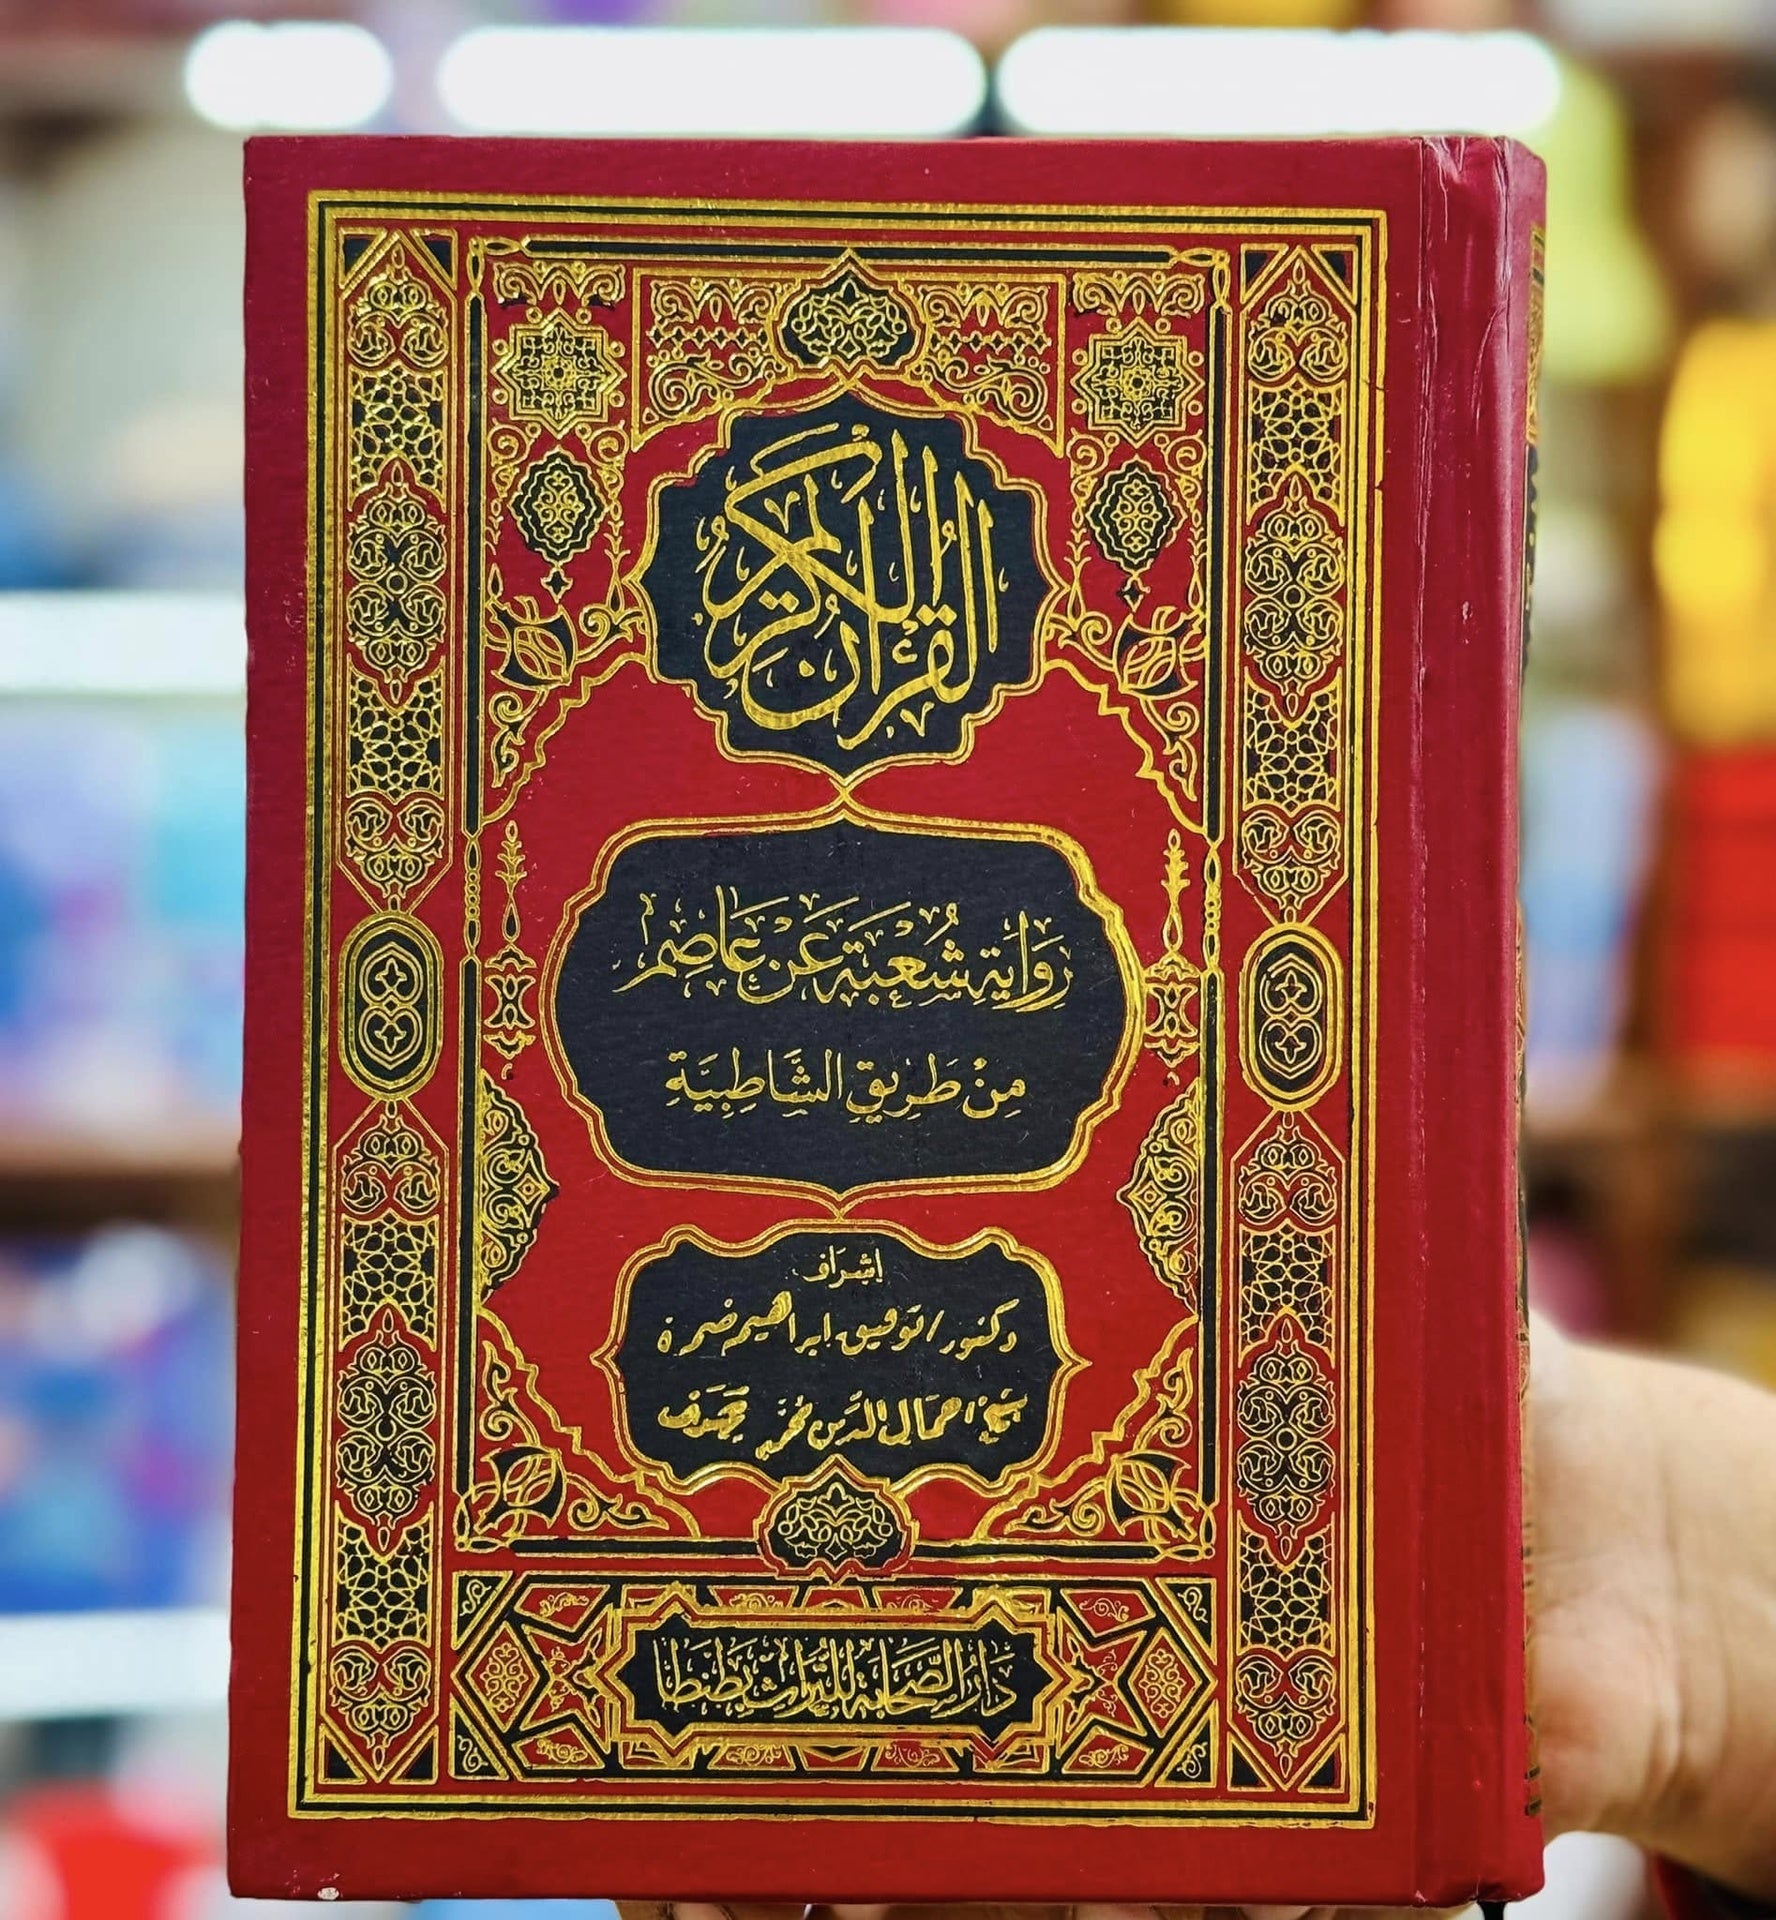 القرآن الكريم
رِوَايَةِ شُعْبَةَ عَنْ عَاصِمٍ
مِنْ طَرِيقِ الشَّاطِبِيَّةِ
إشراف
دكتور / توفيق إبراهيم ضمرة
جمال الدين محمد شرف
دَارُ الصَّحَابَةِ لِلتُّرَاثِ بِطَنْطَا